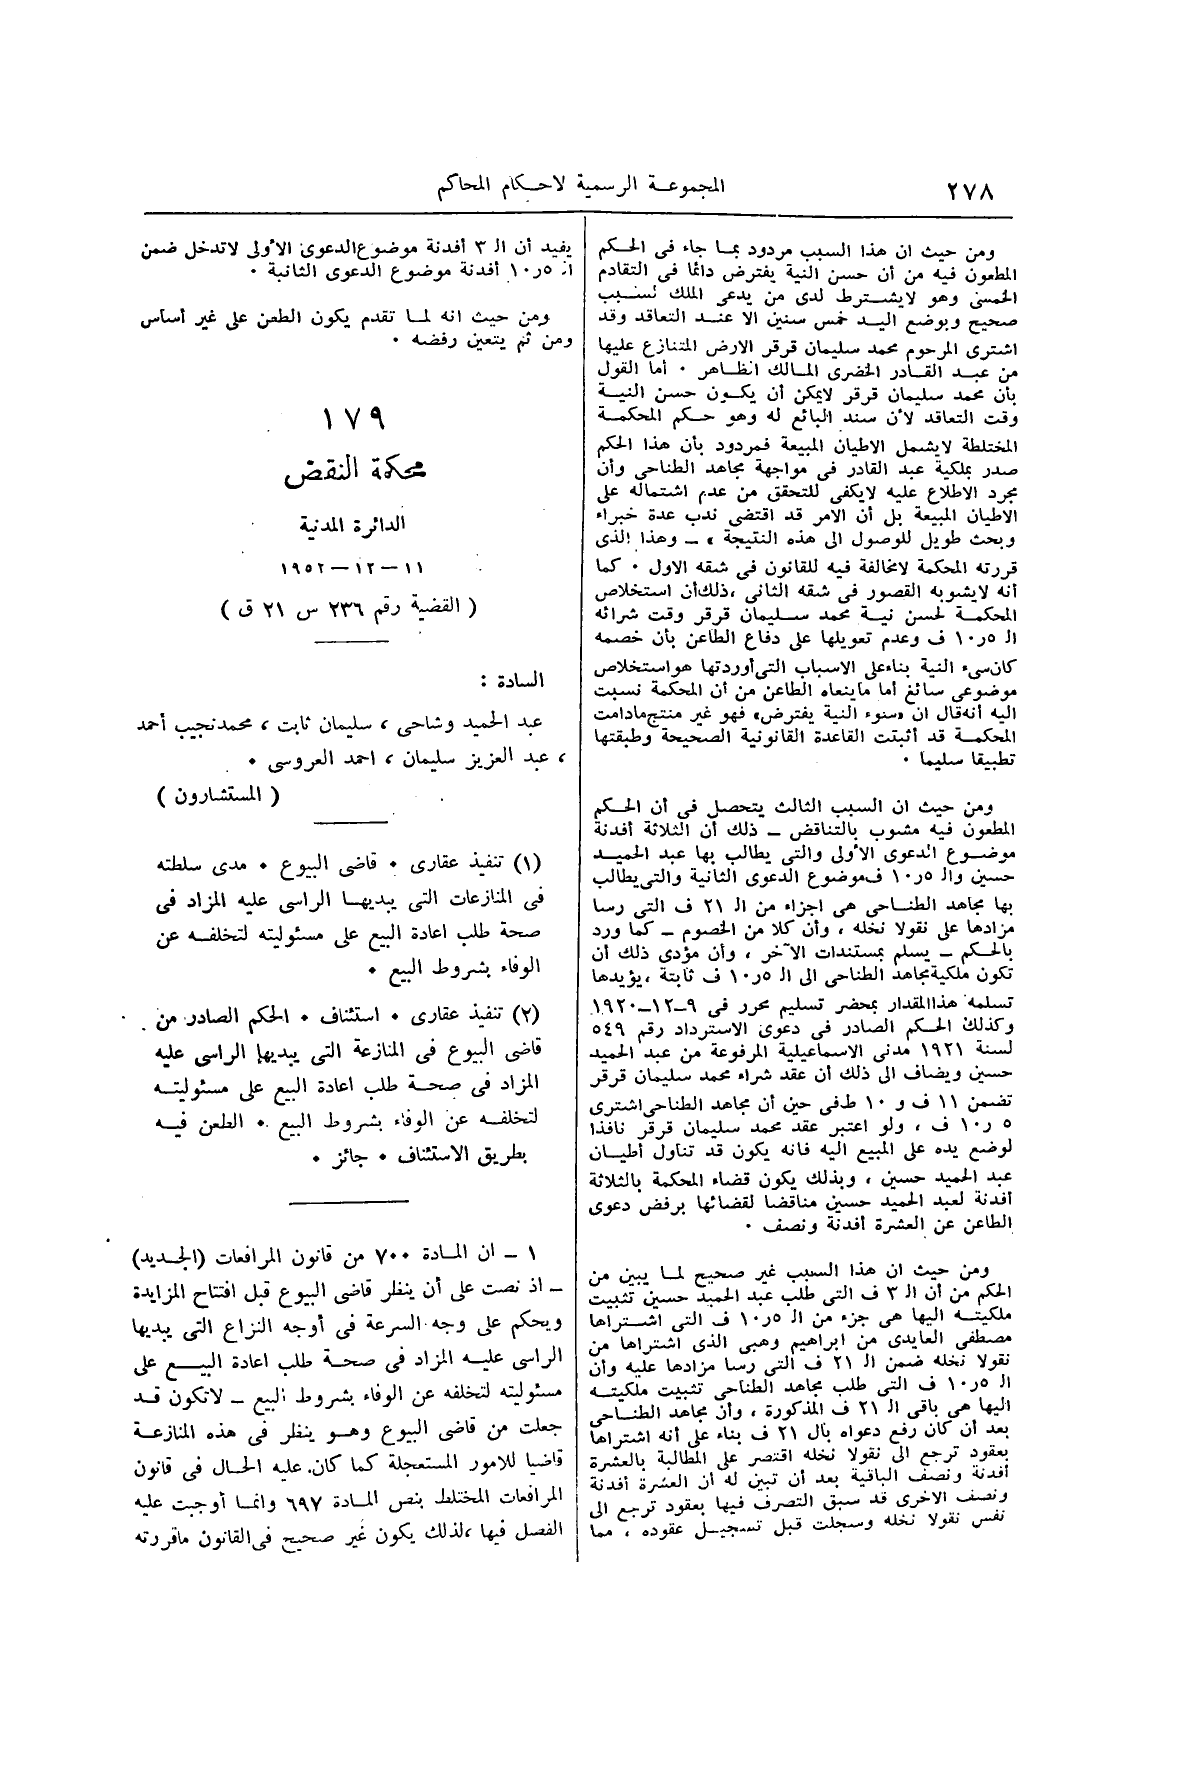 ٢٧٨
المجموعة الرسمية لاحكام المحاكم
ومن حيث ان هذا السبب مردود بما جاء فى الحكم
المطعون فيه من أن حسن النية يفترض دائما فى التقادم
الخمسى وهو لايشترط لدى من يدعى الملك لسبب
صحيح وبوضع اليد خمس سنين الا عند التعاقد وقد
اشترى المرحوم محمد سليمان قرقر الارض المتنازع عليها
من عبد القادر الخضرى المالك الظاهر ٠ أما القول
بأن محمد سليمان قرقر لايمكن أن يكون حسن النية
وقت التعاقد لأن سند البائع له وهو حكم المحكمة
المختلطة لايشمل الاطيان المبيعة فمردود بأن هذا الحكم
صدر بملكية عبد القادر فى مواجهة مجاهد الطناحى وأن
مجرد الاطلاع عليه لايكفى للتحقق من عدم اشتماله على
الاطيان المبيعة بل أن الامر قد اقتضى ندب عدة خبراء
وبحث طويل للوصول الى هذه النتيجة » ــ وهذا الذى
قررته المحكمة لامخالفة فيه للقانون فى شقه الاول ٠ كما
أنه لايشوبه القصور فى شقه الثانى ،ذلك أن استخلاص
المحكمة لحسن نية محمد سليمان قرقر وقت شرائه
الـ ٥ر١٠ ف وعدم تعويلها على دفاع الطاعن بأن خصمه
كان سىء النية بناء على الاسباب التى أوردتها هو استخلاص
موضوعى سائغ أما ما ينعاه الطاعن من أن المحكمة نسبت
اليه أنه قال ان «سوء النية يفترض» فهو غير منتج مادامت
المحكمة قد أثبتت القاعدة القانونية الصحيحة وطبقتها
تطبيقا سليما ٠
ومن حيث ان السبب الثالث يتحصل فى أن الحكم
المطعون فيه مشوب بالتناقض ــ ذلك أن الثلاثة أفدنة
موضوع الدعوى الاولى والتى يطالب بها عبد الحميد
حسين والـ ٥ر١٠ ف موضوع الدعوى الثانية والتى يطالب
بها مجاهد الطناحى هى اجزاء من الـ ٢١ ف التى رسا
مزادها على نقولا نخله ، وأن كلا من الخصوم ــ كما ورد
بالحكم ــ يسلم بمستندات الآخر ، وأن مؤدى ذلك أن
تكون ملكية مجاهد الطناحى الى الـ ٥ر١٠ ف ثابتة ،يؤيدها
تسلمه هذا المقدار بمحضر تسليم محرر فى ٩ــ١٢ــ١٩٢٠
وكذلك الحكم الصادر فى دعوى الاسترداد رقم ٥٤٩
لسنة ١٩٢١ مدنى الاسماعيلية المرفوعة من عبد الحميد
حسين ويضاف الى ذلك أن عقد شراء محمد سليمان قرقر
تضمن ١١ ف و ١٠ ط فى حين أن مجاهد الطناحى اشترى
٥ ر١٠ ف ، ولو اعتبر عقد محمد سليمان قرقر نافذا
لوضع يده على المبيع اليه فانه يكون قد تناول أطيان
عبد الحميد حسين ، وبذلك يكون قضاء المحكمة بالثلاثة
أفدنة لعبد الحميد حسين مناقضا لقضائها برفض دعوى
الطاعن عن العشرة أفدنة ونصف ٠
ومن حيث ان هذا السبب غير صحيح لما يبين من
الحكم من أن الـ ٣ ف التى طلب عبد الحميد حسين تثبيت
ملكيته اليها هى جزء من الـ ٥ر١٠ ف التى اشتراها
مصطفى العايدى من ابراهيم وهبى الذى اشتراها من
نقولا نخله ضمن الـ ٢١ ف التى رسا مزادها عليه وأن
الـ ٥ر١٠ ف التى طلب مجاهد الطناحى تثبيت ملكيته
اليها هى باقى الـ ٢١ ف المذكورة ، وأن مجاهد الطناحى
بعد أن كان رفع دعواه بال ٢١ ف بناء على أنه اشتراها
بعقود ترجع الى نقولا نخله اقتصر على المطالبة بالعشرة
أفدنة ونصف الباقية بعد أن تبين له أن العشرة أفدنة
ونصف الاخرى قد سبق التصرف فيها بعقود ترجع الى
نفس نقولا نخله وسجلت قبل تسجيل عقوده ، مما
يفيد أن الـ ٣ أفدنة موضوع الدعوى الأولى لاتدخل ضمن
الـ ٥ر١٠ أفدنة موضوع الدعوى الثانية ٠
ومن حيث انه لما تقدم يكون الطعن على غير أساس
ومن ثم يتعين رفضه ٠
١٧٩
محكمة النقض
الدائرة المدنية
١١ ــ ١٢ ــ ١٩٥٢
( القضية رقم ٢٣٦ س ٢١ ق )
السادة :
عبد الحميد وشاحى ، سليمان ثابت ، محمد نجيب أحمد
، عبد العزيز سليمان ، احمد العروسى ٠
( المستشارون )
(١) تنفيذ عقارى ٠ قاضى البيوع ٠ مدى سلطته
فى المنازعات التى يبديها الراسى عليه المزاد فى
صحة طلب اعادة البيع على مسئوليته لتخلفه عن
الوفاء بشروط البيع ٠
(٢) تنفيذ عقارى ٠ استئناف ٠ الحكم الصادر من
قاضى البيوع فى المنازعة التى يبديها الراسى عليه
المزاد فى صحة طلب اعادة البيع على مسئوليته
لتخلفه عن الوفاء بشروط البيع ٠ الطعن فيه
بطريق الاستئناف ٠ جائز ٠
١ ــ ان المادة ٧٠٠ من قانون المرافعات (الجديد)
ــ اذ نصت على أن ينظر قاضى البيوع قبل افتتاح المزايدة
ويحكم على وجه السرعة فى أوجه النزاع التى يبديها
الراسى عليه المزاد فى صحة طلب اعادة البيع على
مسئوليته لتخلفه عن الوفاء بشروط البيع ــ لاتكون قد
جعلت من قاضى البيوع وهو ينظر فى هذه المنازعة
قاضيا للامور المستعجلة كما كان عليه الحال فى قانون
المرافعات المختلط بنص المادة ٦٩٧ وانما أوجبت عليه
الفصل فيها ،لذلك يكون غير صحيح فى القانون ماقررته